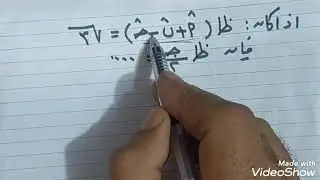 اذا كان : ظا (أ̂ + ب̂ - ج̂) = √٣
فإن ظا ج ....
Made With
VideoShow